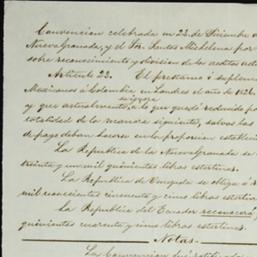 Convencion celebrada en 23 de Diciembre d
Nueva Granada, y el Sor. Santos Michelena por
sobre reconocimiento y division de los creditos activ
Artículo 22. El prestamo i suplemen
Mexicanos á Colombia, en Londres el año de 1826.
y que actualmente, a lo que quedó reducido por
totalidad de la manera siguiente, salvas las
de pago deban hacerse en la proporcion establecid
La Republica de la Nueva Granada se
treinta y un mil quinientas libras esterlinas.
La Republica de Venezuela se obliga á
mil seiscientas cincuenta y cinco libras esterlin
La Republica del Ecuador reconocerá
quinientas cuarenta y cinco libras esterlinas.
Notas.
La Convencion fue ratificada